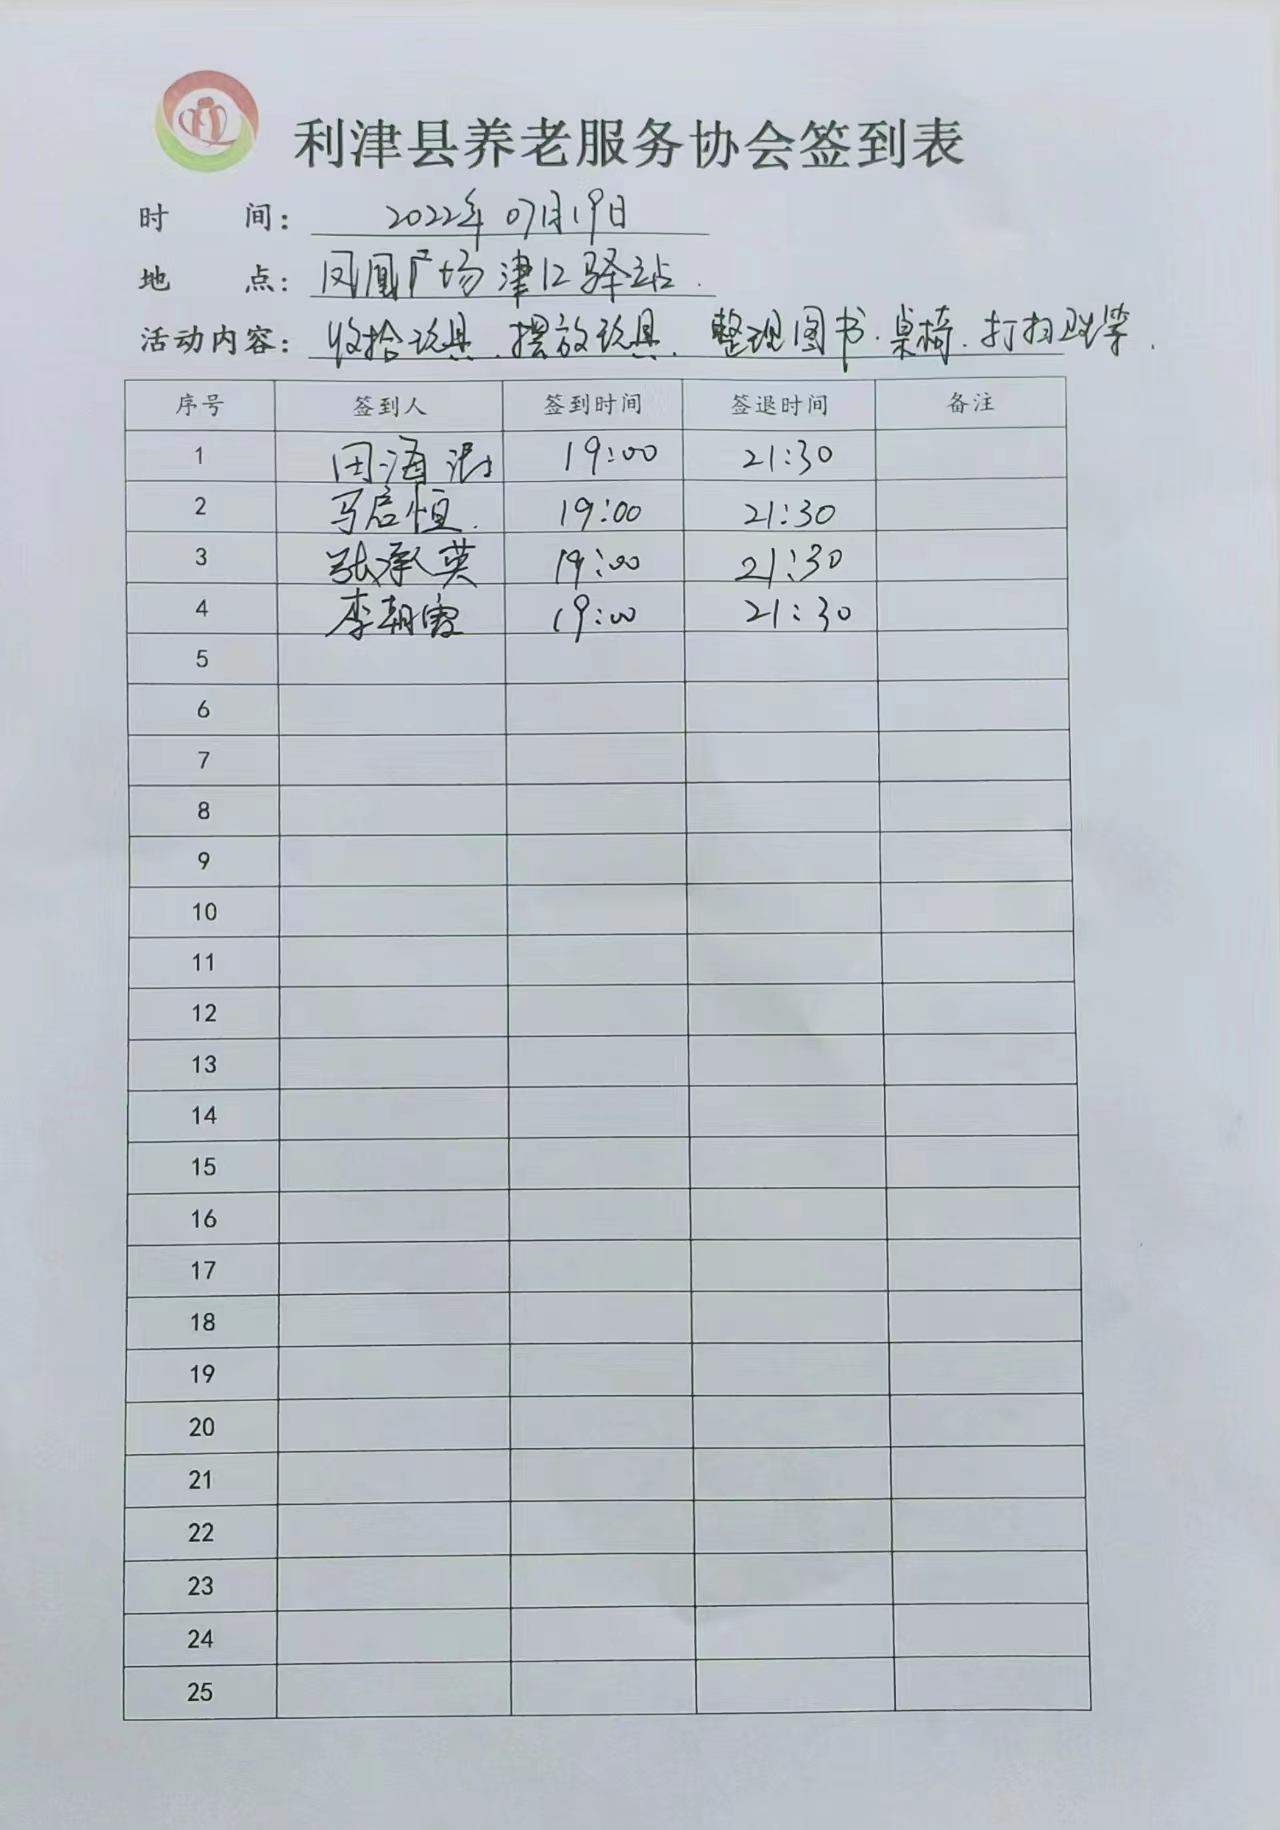 利津县养老服务协会签到表
时 间： 2022年07月19日
地 点： 凤凰广场津口驿站.
活动内容： 收拾玩具、摆放玩具、整理图书.桌椅.打扫卫生等.
序号 签到人 签到时间 签退时间 备注
1 田海 19:00 21:30
2 马启恒. 19:00 21:30
3 张承英 19:00 21:30
4 李朝霞 19:00 21:30
5
6
7
8
9
10
11
12
13
14
15
16
17
18
19
20
21
22
23
24
25